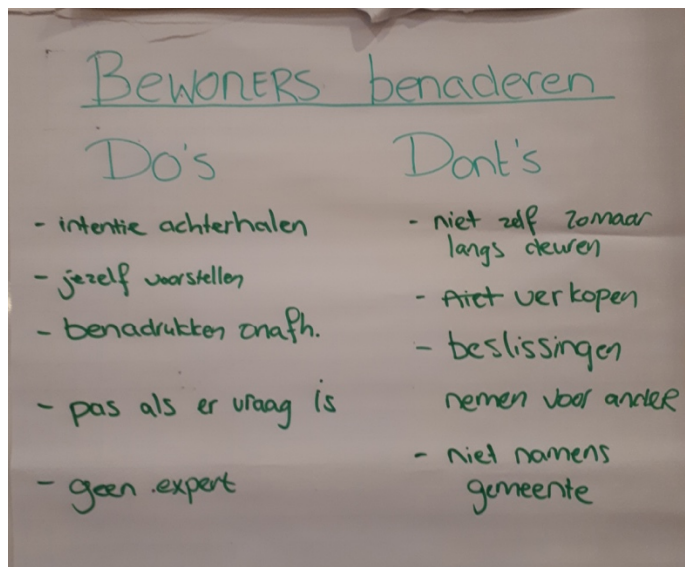 BEWONERS benaderen
Do's
- intentie achterhalen
- jezelf voorstellen
- benadrukken onafh.
- pas als er vraag is
- geen expert
Dont's
- niet zelf zomaar
langs deuren
- niet verkopen
- beslissingen
nemen voor ander
- niet namens
gemeente